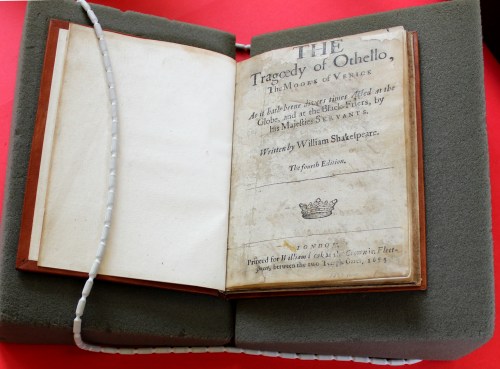 THE
Tragœdy of Othello,
The MOORE of VENICE
As it hath beene divers times Acted at the
Globe, and at the Black-Friers, by
his Majeſties SERVANTS.
Written by William Shakeſpeare.
The fourth Edition.
LONDON,
Printed for William Leak at the Crowne in Fleet-
ſtreet, between the two Temple Gates, 1655